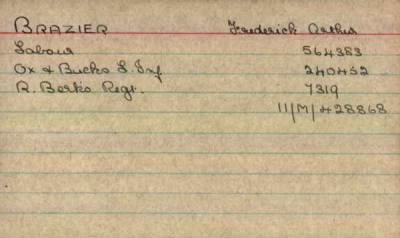 BRAZIER Frederick Arthur
Labour 564383
Ox & Bucks L. Inf 240452
R. Berks Regt. 7319
11/M/428868